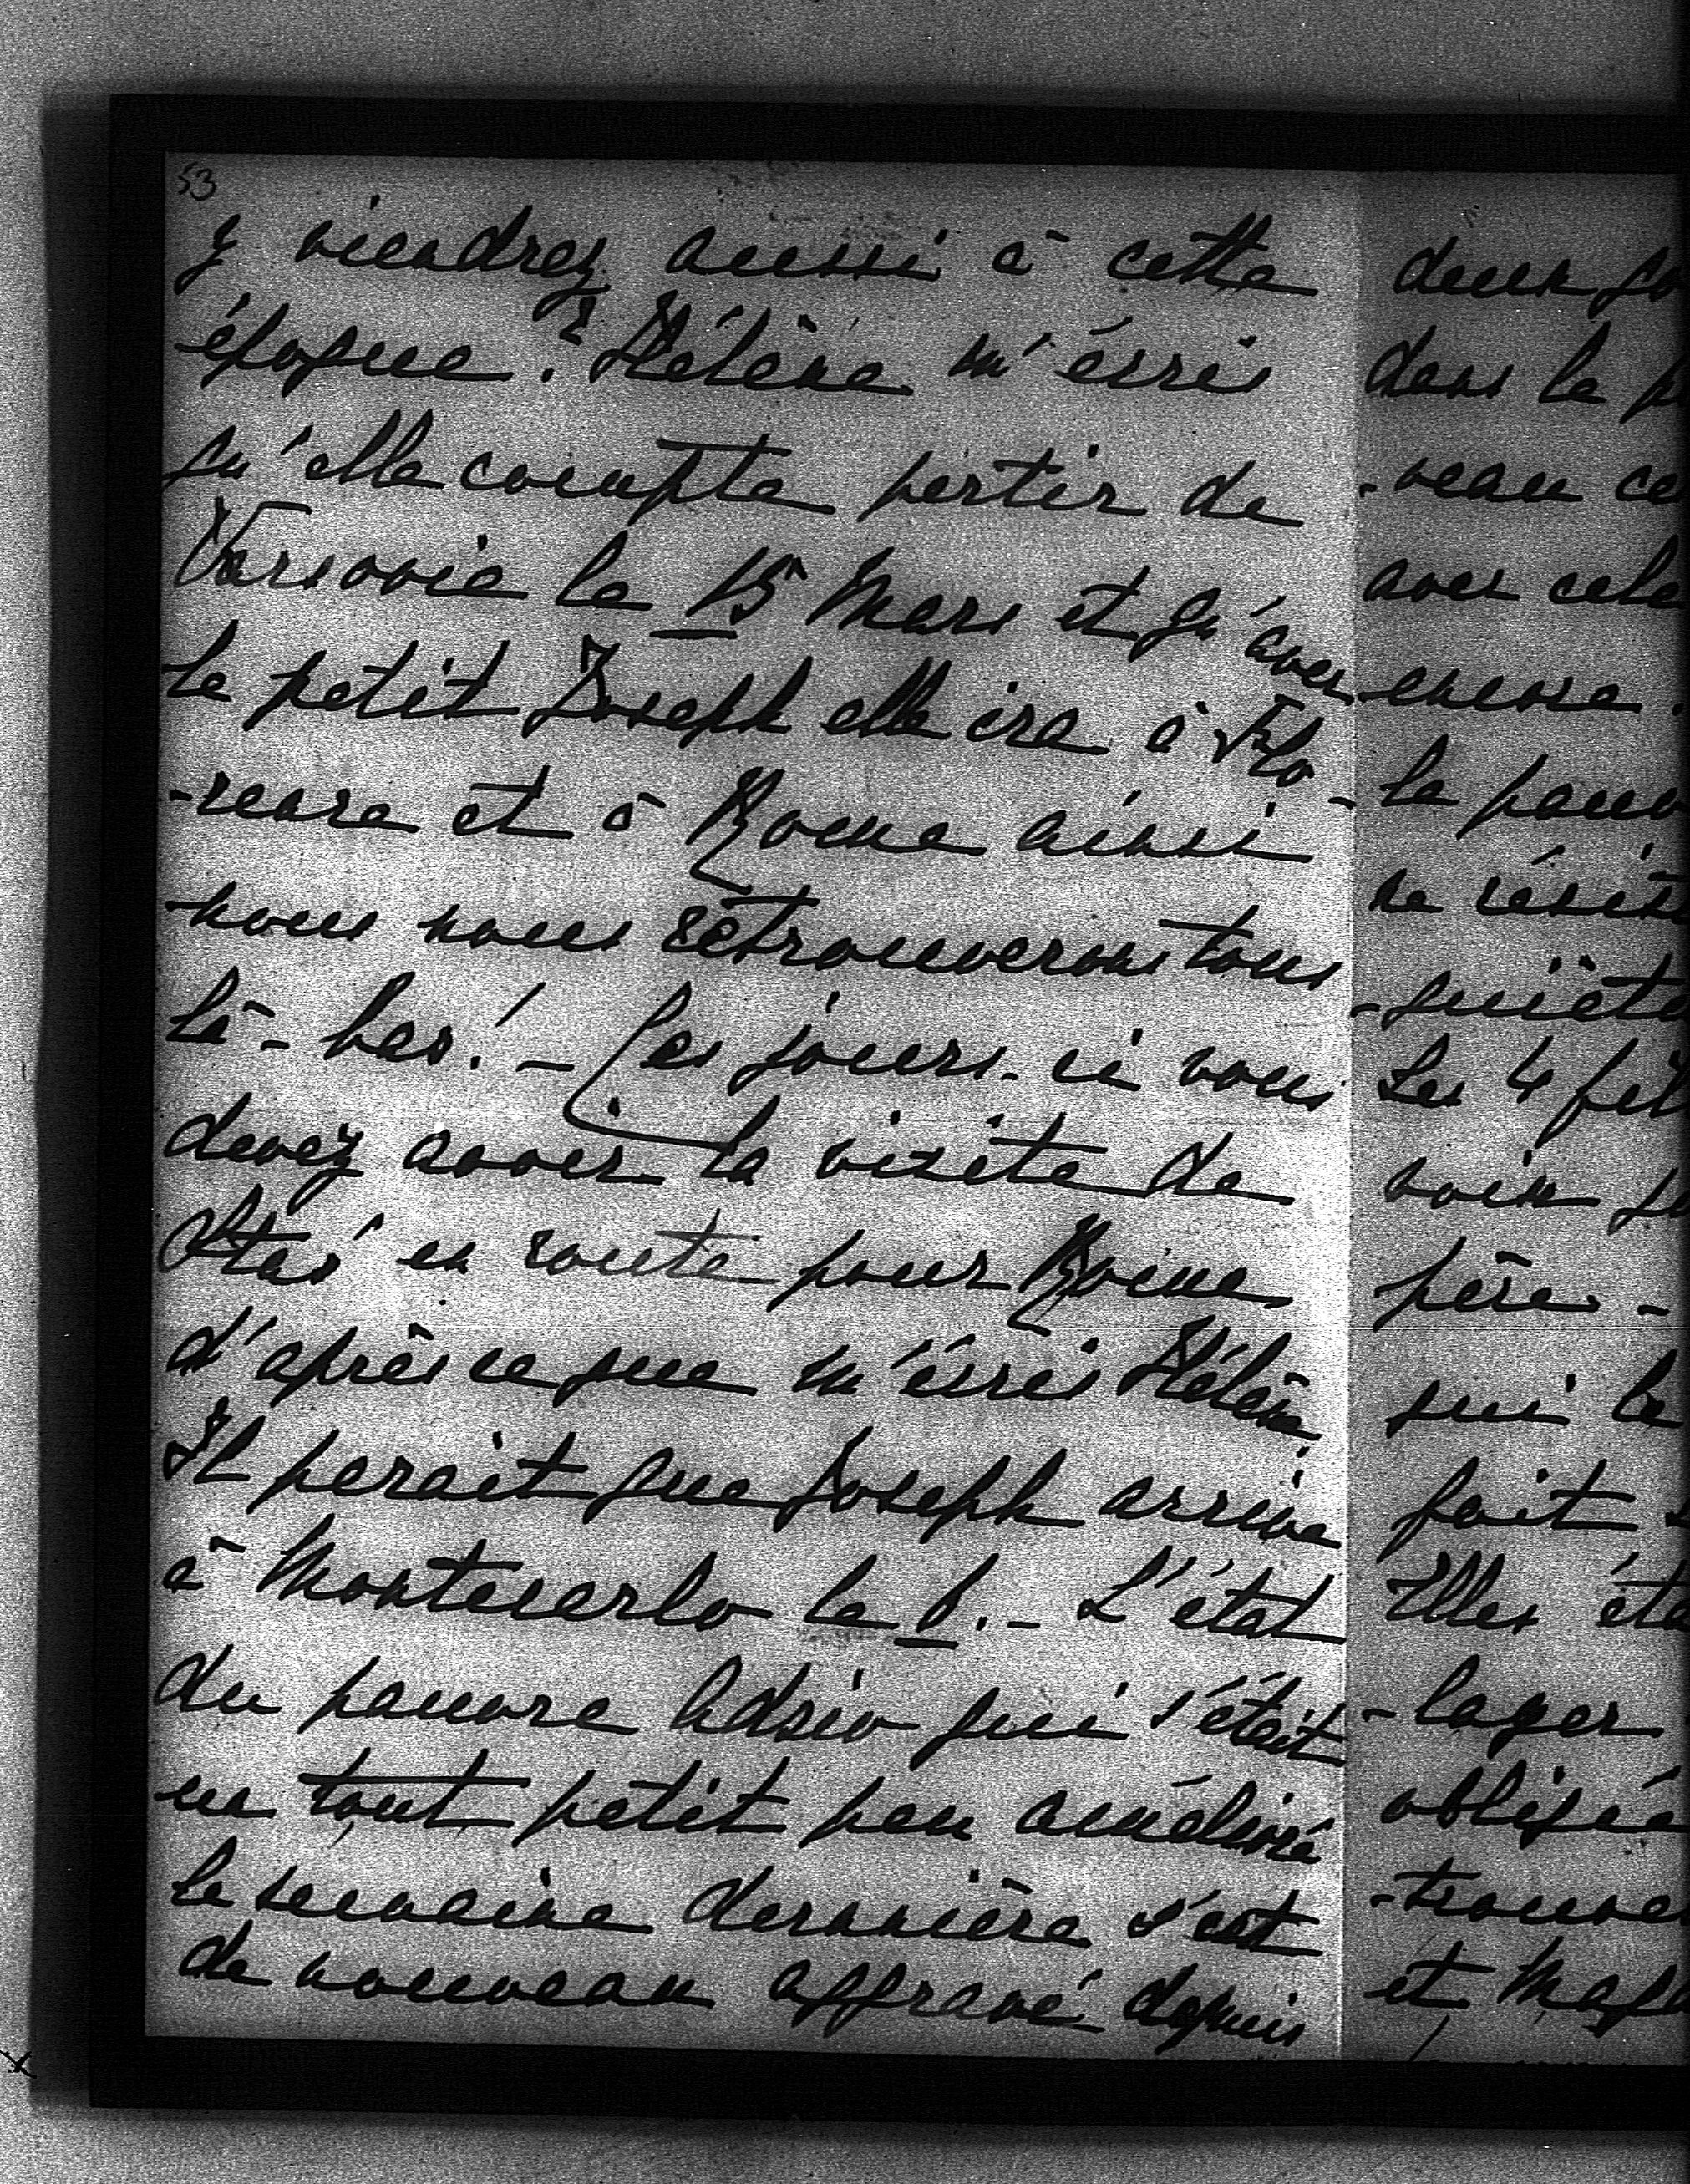 53
y viendrez aussi à cette
époque ? Hélène m'écris
qu'elle compte partir de
Varsovie le 15 Mars et qu'avec
le petit Joseph elle ira à Flo-
-rence et à Rome ainsi
nous nous retrouverons tous
là-bas! - Ces jours-ci vous
devez avoir la visite de
Staś en route pour Rome
d'après ce que m'écris Hélène
Il parait que Joseph arrive
à Montecarlo le 1. - L'état
du pauvre Adzio qui s'était
un tout petit peu amélioré
la semaine dernière s'est
de nouveau aggravé depuis
deux
dans la
-veau
avec cela
encore.
la
ne
-quiète
Les 4
voir
père -
qui le
fait
Elles
-lager
obligée
-trouve
et